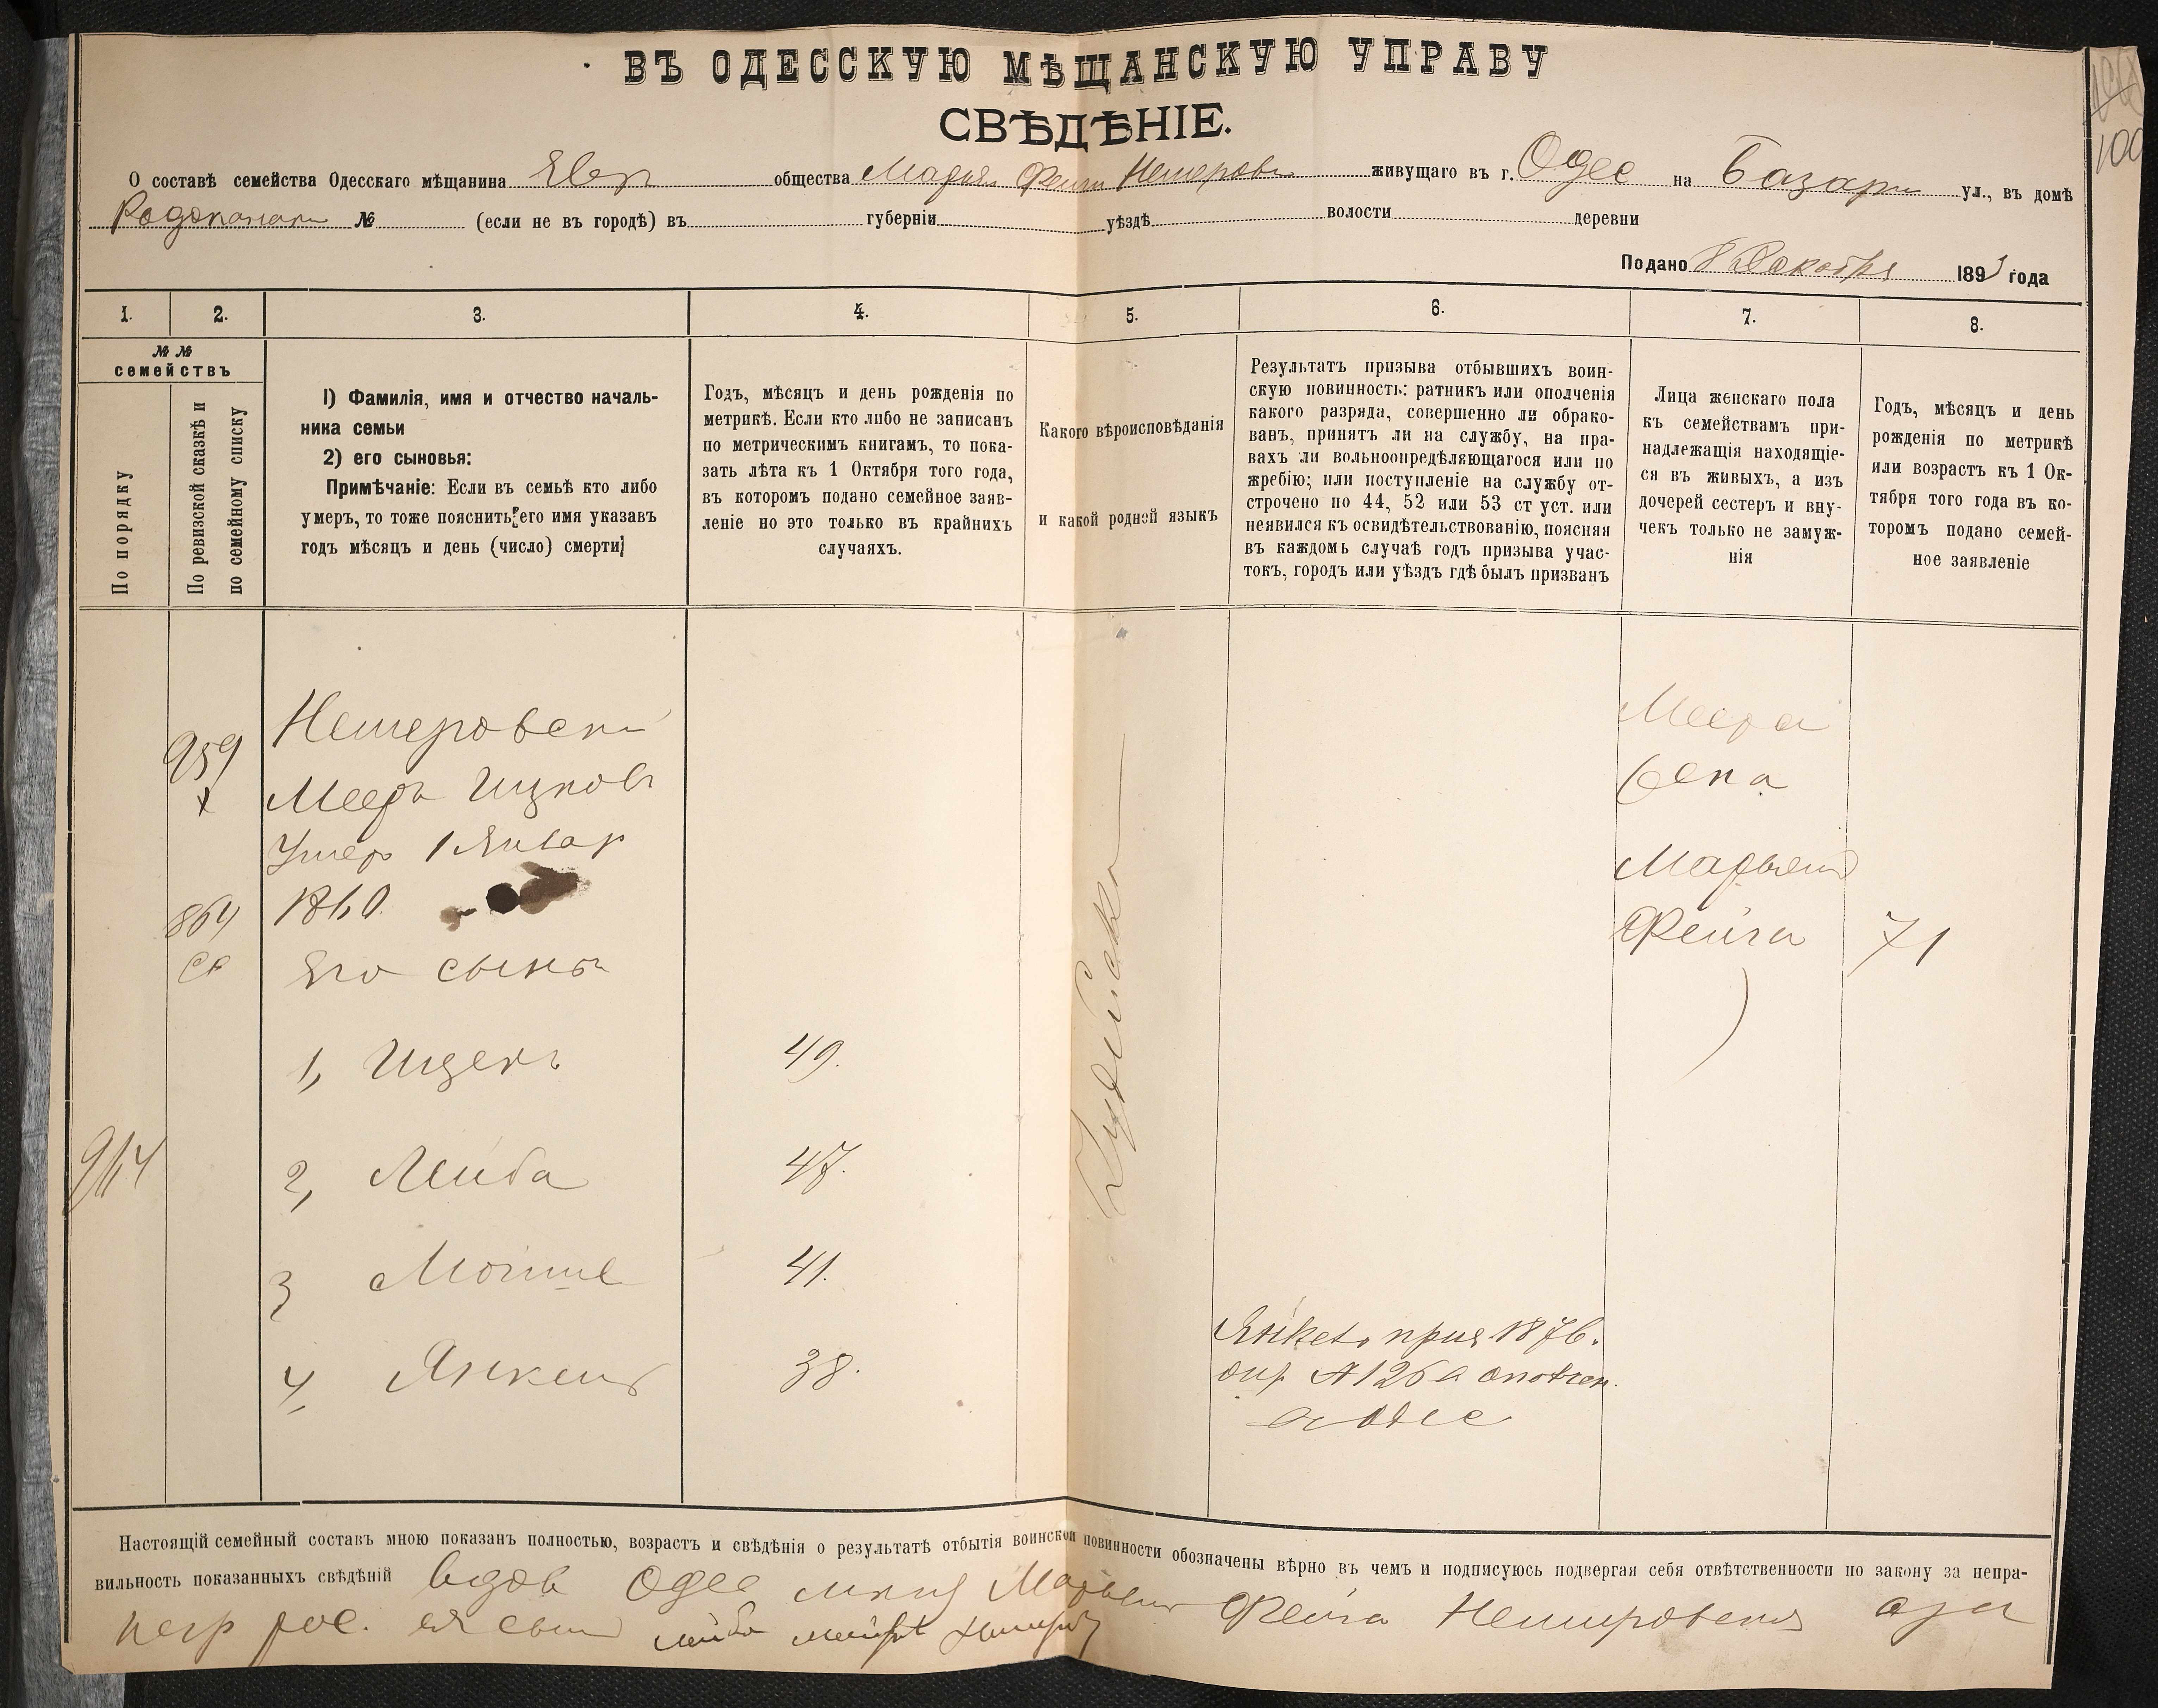 ВЪ ОДЕССКУЮ МѢЩАНСКУЮ УПРАВУ
СВѢДѢНІЕ.
О составѣ семейства Одесскаго мѣщанина Евр общества Марьям Фейги Немеровск живущаго въ г. Одес на Базарн ул., въ домѣ
Родоканаки № (если не въ городѣ) въ губерніи уѣздѣ волости деревни
Подано 8 Декабря 1893 года
1. 2. 3. 4. 5. 6. 7. 8.
№ №
семействъ
По порядку
По ревизской сказкѣ и
по семейному списку
1) Фамилія, имя и отчество началь-
ника семьи
2) его сыновья:
Примѣчаніе: Если въ семьѣ кто либо
умеръ, то тоже пояснить его имя указавъ
годъ мѣсяцъ и день (число) смерти
Годъ, мѣсяцъ и день рожденія по
метрикѣ. Если кто либо не записанъ
по метрическимъ книгамъ, то пока-
зать лѣта къ 1 Октября того года,
въ которомъ подано семейное заяв-
леніе но это только въ крайнихъ
случаяхъ.
Какого вѣроисповѣданія
и какой родной языкъ
Результатъ призыва отбывшихъ воин-
скую повинность: ратникъ или ополченія
какого разряда, совершенно ли обрако-
ванъ, принятъ ли на службу, на пра-
вахъ ли вольноопредѣляющагося или по
жребію; или поступленіе на службу от-
строчено по 44, 52 или 53 ст уст. или
неявился къ освидѣтельствованію, поясняя
въ каждомь случаѣ годъ призыва учас-
токъ, городъ или уѣздъ гдѣ былъ призванъ
Лица женскаго пола
къ семействамъ при-
надлежащія находящіе-
ся въ живыхъ, а изъ
дочерей сестеръ и вну-
чекъ только не замуж-
нія
Годъ, мѣсяцъ и день
рожденія по метрикѣ
или возрастъ къ 1 Ок-
тября того года въ ко-
торомъ подано семей-
ное заявленіе
959
Немеровски
Меера
Мееръ Ицков
жена
Умер 1 Январ
Марьем
1860
Фейга 71
864
Его сыны
1, Ицекъ 49.
Іудейско
964
2, Лейба 47.
3 Мойше 41.
4, Янкель 38.
Янкель при 1876.
Настоящій семейный составъ мною показанъ полностью, возрастъ и свѣдѣнія о результатѣ отбытія воинской повинности обозначены вѣрно въ чемъ и подписуюсь подвергая себя отвѣтственности по закону за непра-
вильность показанныхъ свѣдѣній вдов Одес Марьем Фейга Немировская а за
негр рос. ея сын Лейба
100